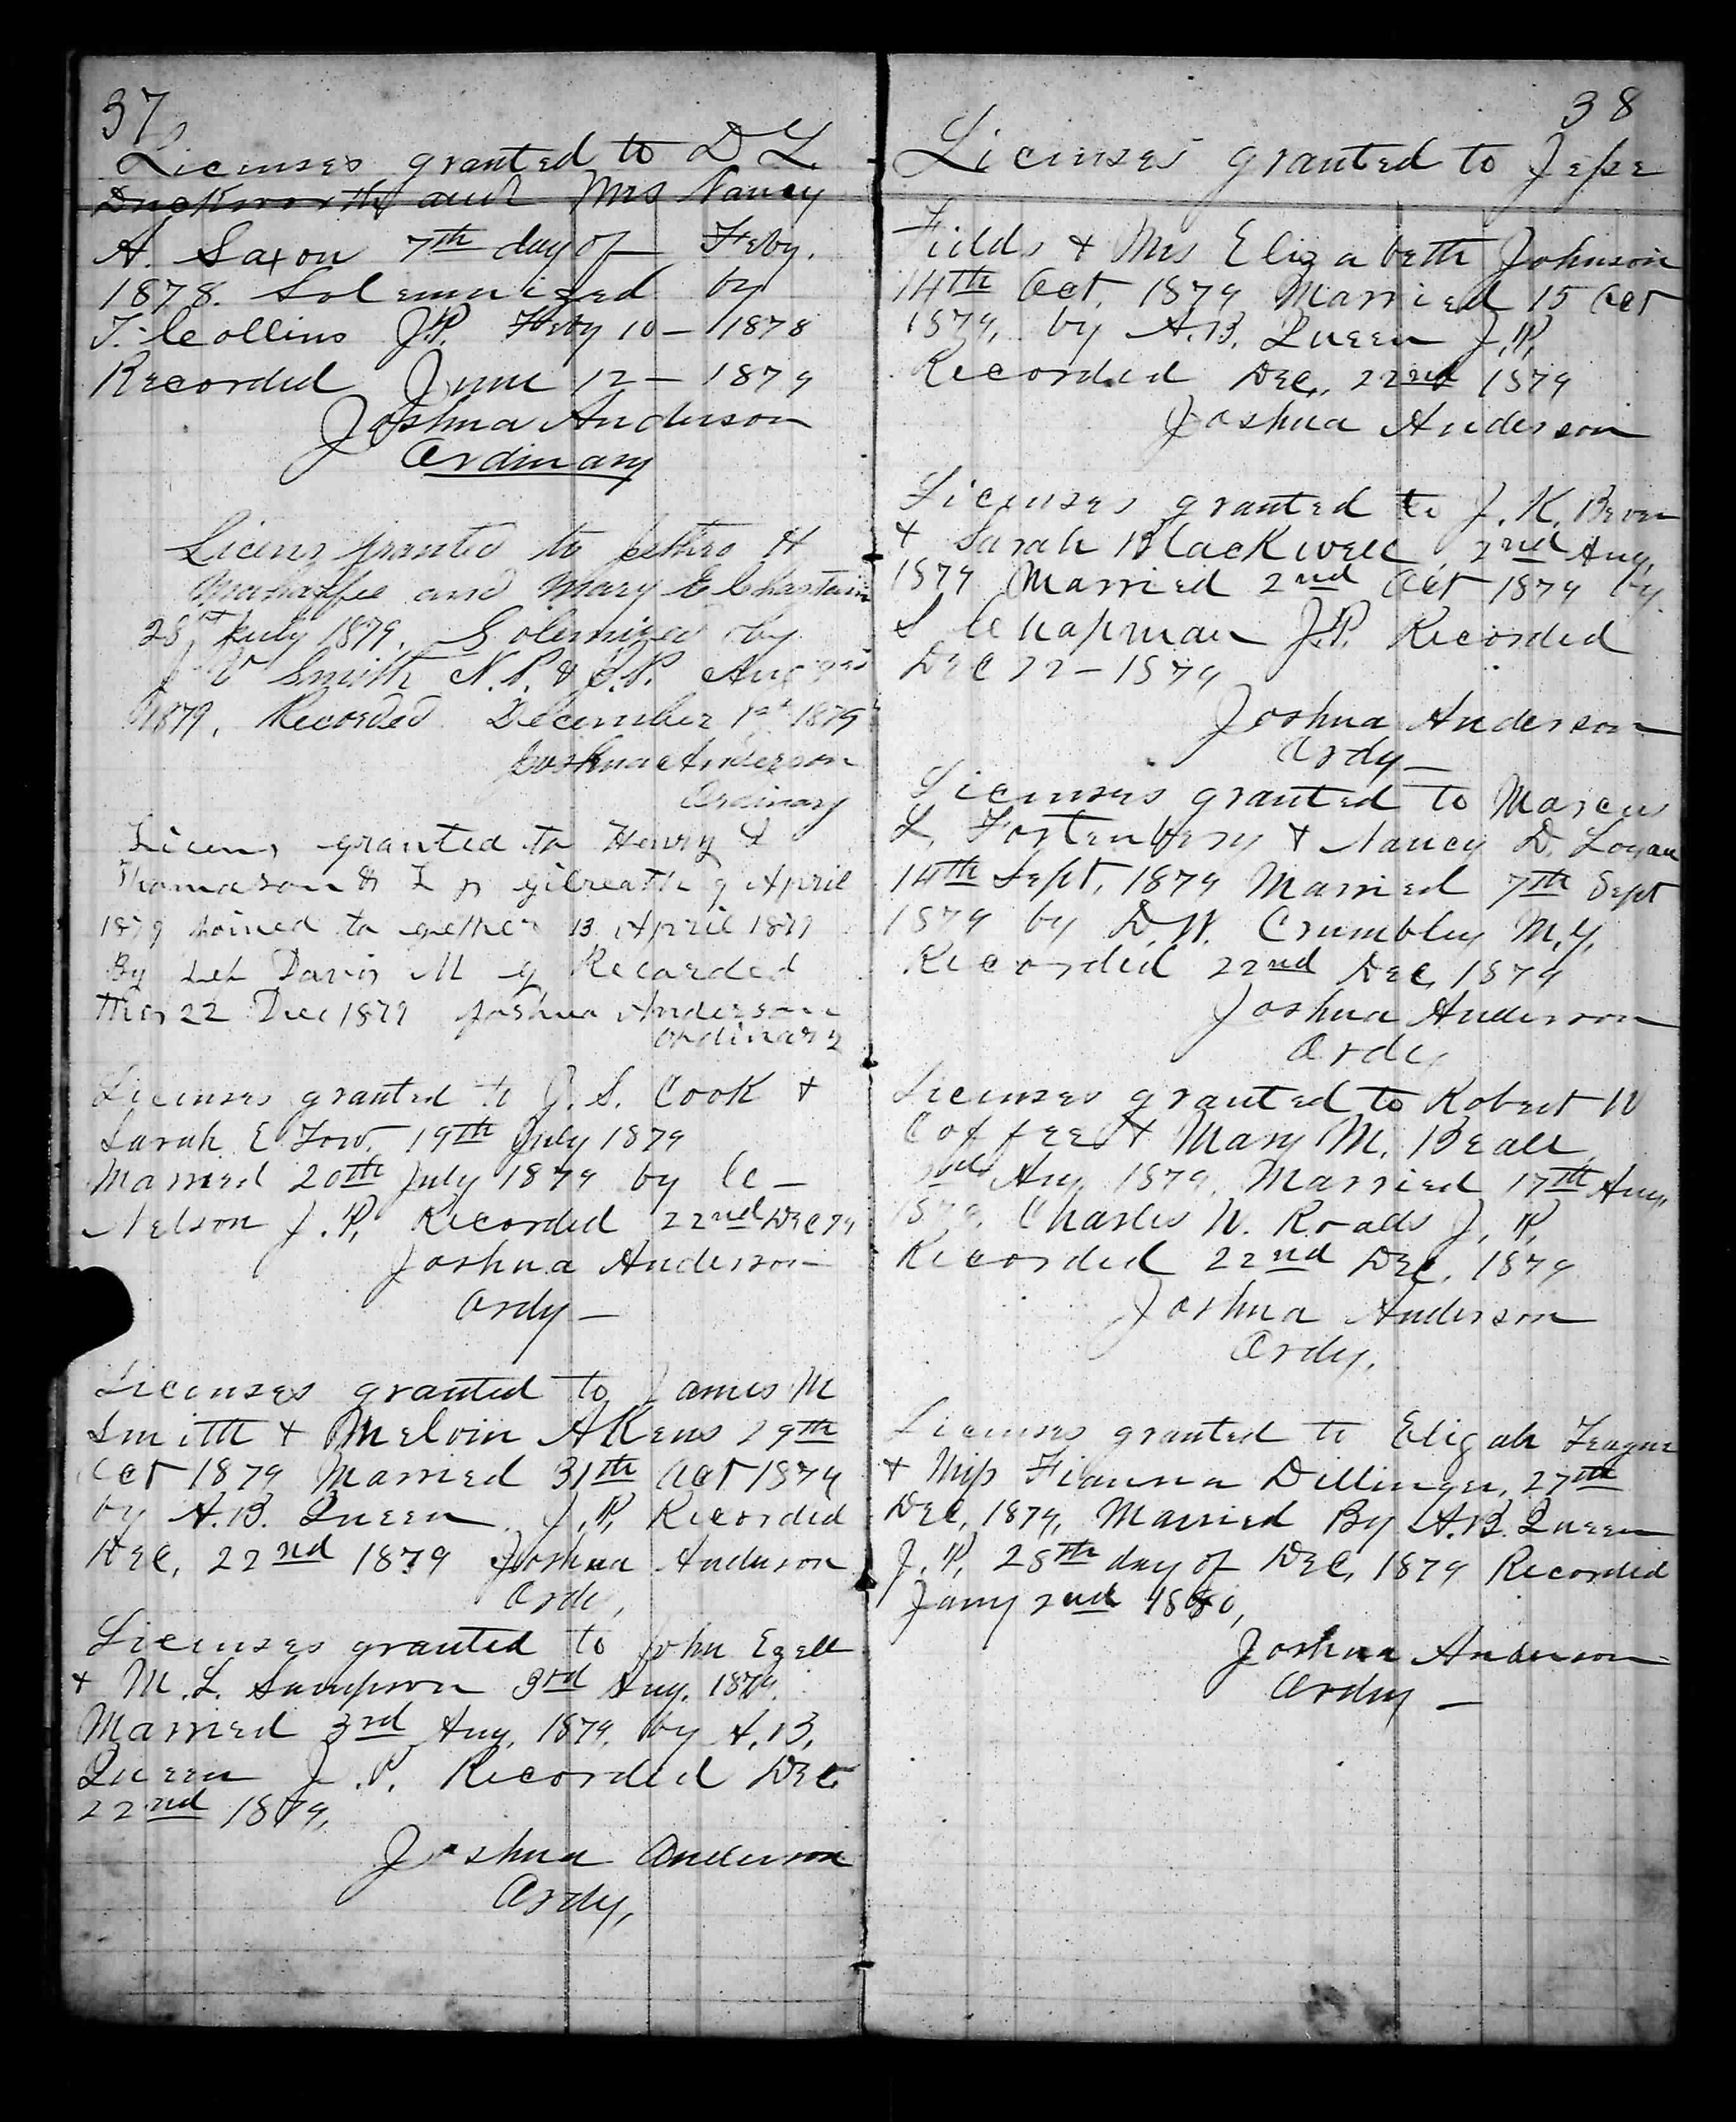 37
Licenses granted to D L
Duckworth and Mrs Nancy
A. Saxon 7th day of Feby.
1878. Solemnized by
T. Collins J.P. Feby 10 - 1878
Recorded June 12 - 1879
Joshua Anderson
Ordinary
Licens granted to Jethro H
Mahaffee and Mary E Chastain
28th July 1879. Solemnized by
J V Smith N.P. & J.P. Aug
1879. Recorded December 1st 1879
Joshua Anderson
Ordinary
Licens granted to Henry
Thomason & gilreath 9 April
1879 Joined to gether 13 April 1879
By Davis M g Recarded
this 22 Dec 1879 Joshua Anderson
ordinary
Licenses granted to J. S. Cook +
Sarah E Tow, 19th July 1879
Married 20th July 1879 by C -
Nelson J.P. Recorded 22nd Dec 79
Joshua Anderson
Ordy -
Licenses granted to James M
Smith + Melvin Akens 29th
Oct 1879 Married 31th Oct 1879
by A.B. Queen J.P. Recorded
Dec, 22nd 1879 Joshua Anderson
Ordy,
Licenses granted to John Ezell
+ M. L. Sampson 3rd Aug. 1879.
Married 3rd Aug. 1879. by A.B.
Queen J.P. Recorded Dec
22nd 1879,
Joshua Anderson
Ordy,
38
Licenses granted to Jesse
Fields + Mrs Elizabeth Johnson
14th Oct. 1879 Married 15 Oct
1879, by A.B. Queen J.P.
Recorded Dec, 22nd 1879
Joshua Anderson
Licenses granted to J. K. Beven
+ Sarah Blackwell 2nd Aug,
1879 Married 2nd Oct 1879 by
S Chapman J.P. Recorded
Dec 22 - 1879
Joshua Anderson
Ordy -
Licenses granted to Marcus
L. Fortenbery + Nancy D. Logan
14th Sept, 1879 Married 7th Sept
1879 by D.W. Crumbley M.G.
Recorded 22nd Dec, 1879
Joshua Anderson
Ordy
Licenses granted to Robert W
Coffee + Mary M. Beall
Aug 1879. Married 17th Aug,
1879. Charles W. Roads J.P.
Recorded 22nd Dec, 1879
Joshua Anderson
Ordy.
Licenses granted to Eligah Teague
+ Miss Fianna Dillinger, 27th
Dec, 1879, Married By A.B. Queen
J.P. 28th day of Dec, 1879 Recorded
Jany 2nd 1880,
Joshua Anderson
Ordy -